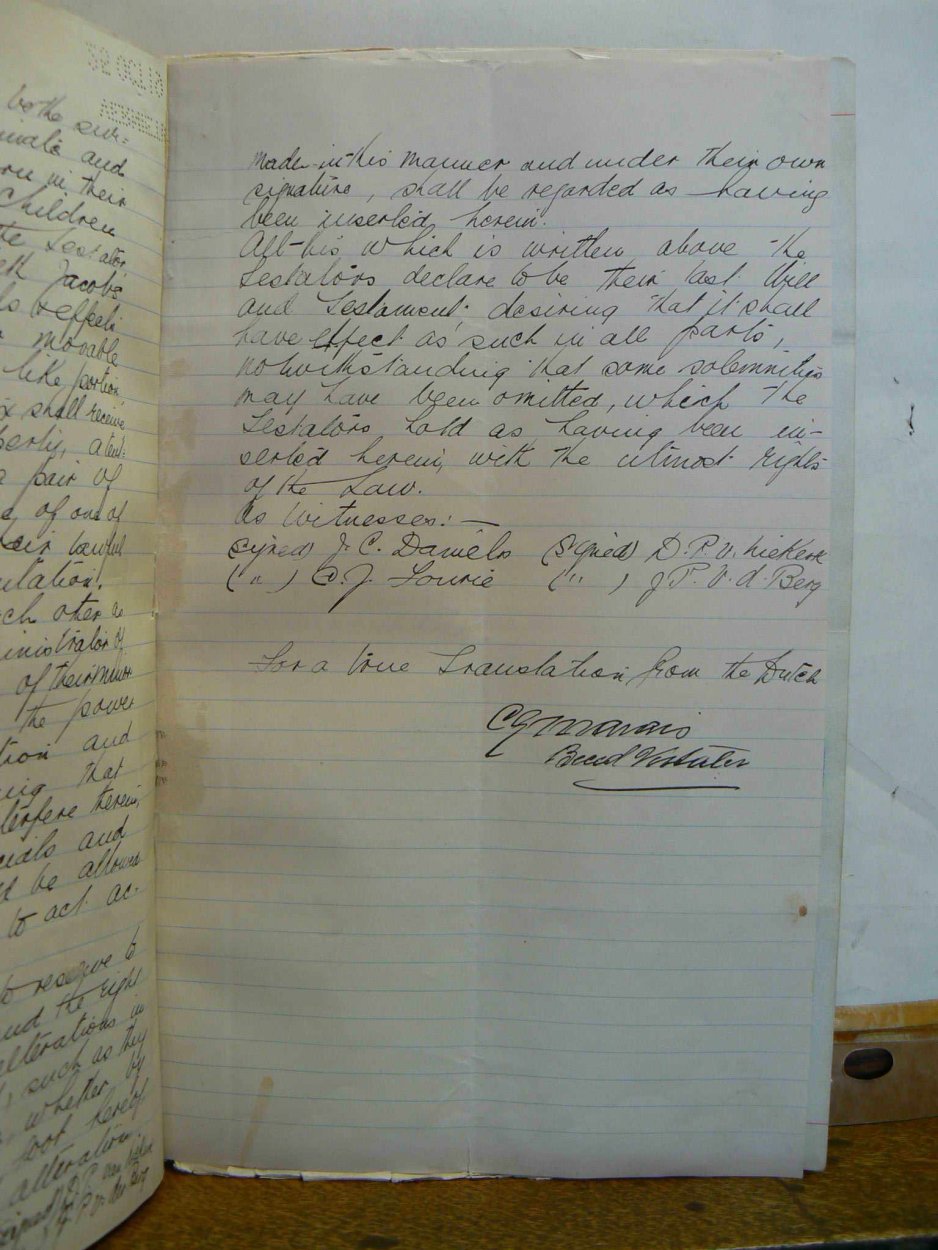 32 OCT 10
be the sur-
and
in their
Children
the Testator
Jacobs
effects
movable
like portion
shall receive
a pair of
of one of
their lawful
each other as
administrator of
of their minor
the power
and
that
interfere therein,
and
be allowed
to act ac-
to reserve to
and the right
alterations in
such as they
whether by
foot hereof
alteration
D. P. van
J. P. v. der Berg
made in this manner and under their own
signature, shall be regarded as having
been inserted herein.
All this which is written above the
Testators declare to be their last Will
and Testament desiring that it shall
have effect as such in all parts,
notwithstanding that some solemnities
may have been omitted, which the
Testators hold as having been in-
serted herein, with the utmost rights
of the Law.
As Witnesses: —
(signed) J. C. Daniels (signed) D. P. v. Niekerk
( " ) D. J. Lourie ( " ) J. P. V. d. Berg
For a true Translation from the Dutch
C J Marais